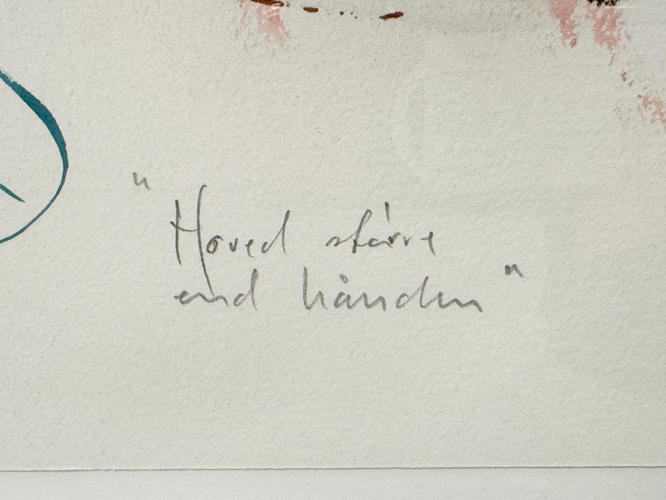 "Hoved større
end hånden"